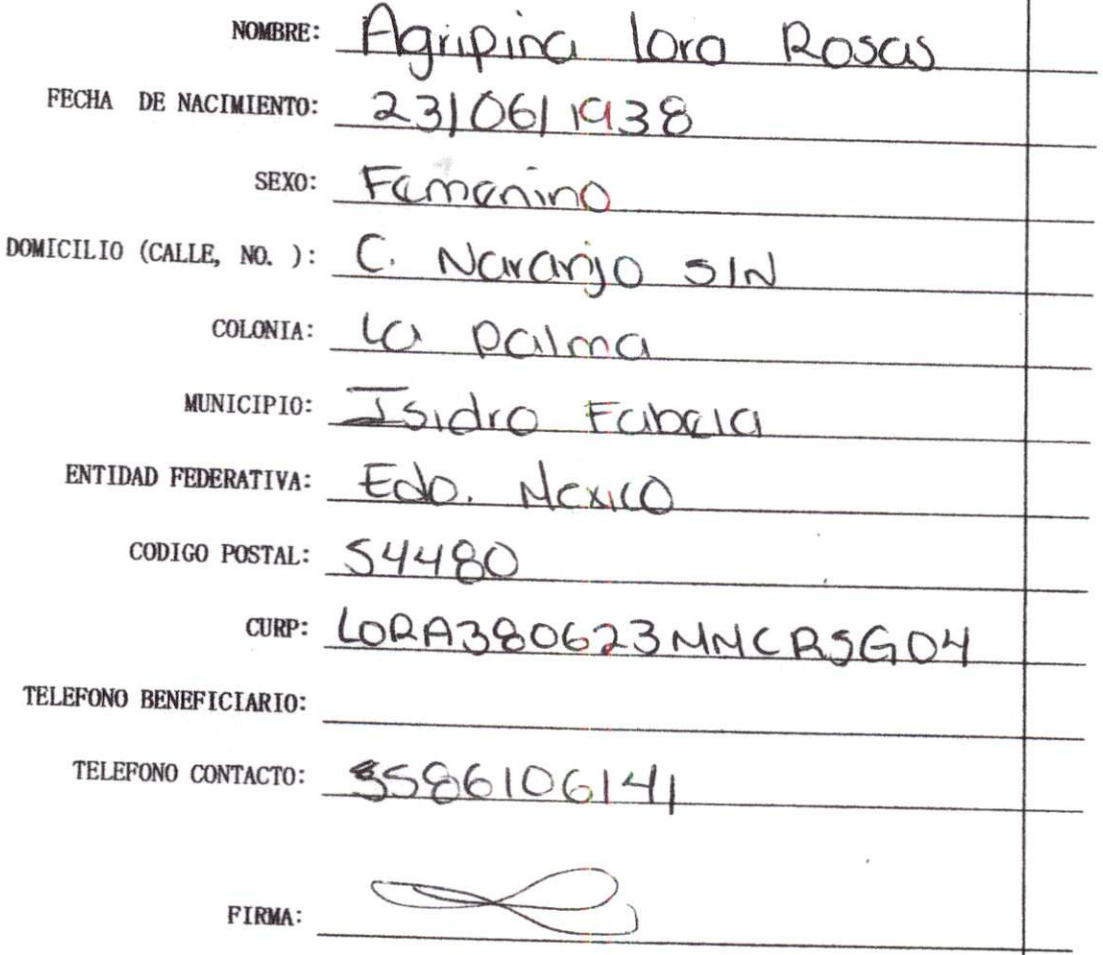 NOMBRE: Agripina lora Rosas
FECHA DE NACIMIENTO: 23/06/1938
SEXO: Femenino
DOMICILIO (CALLE, NO. ): C. Naranjo S/N
COLONIA: La palma
MUNICIPIO: Isidro Fabela
ENTIDAD FEDERATIVA: Edo. Mexico
CODIGO POSTAL: 54480
CURP: LORA380623MMCRSG04
TELEFONO BENEFICIARIO:
TELEFONO CONTACTO: 5586106141
FIRMA: